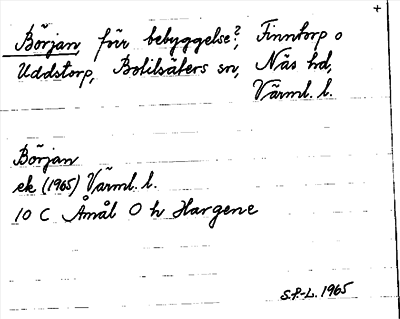 Början, förr bebyggelse?, Finntorp o
Uddstorp, Botilsäters sn, Näs hd,
Värml. l.
Början
ek (1965) Värml. l.
10 C Åmål O h Hargene
S.P-L. 1965